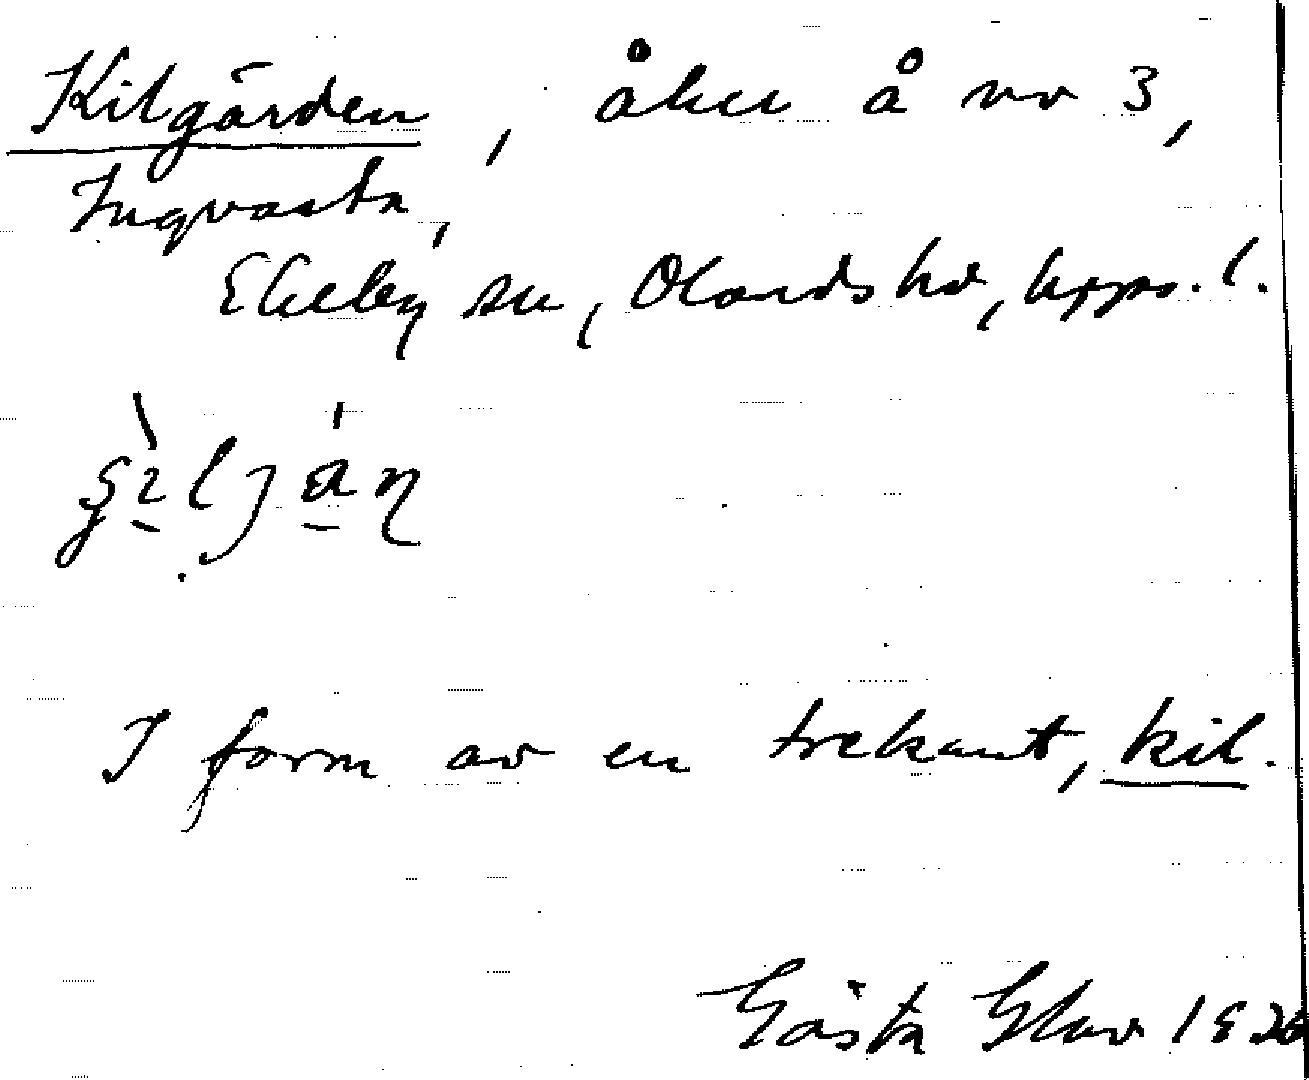 Kilgärden, åker å nr 3,
Ingvasta,
Ekeby sn, Olands hd, Upps. l.
I form av en trekant, kil.
Gösta